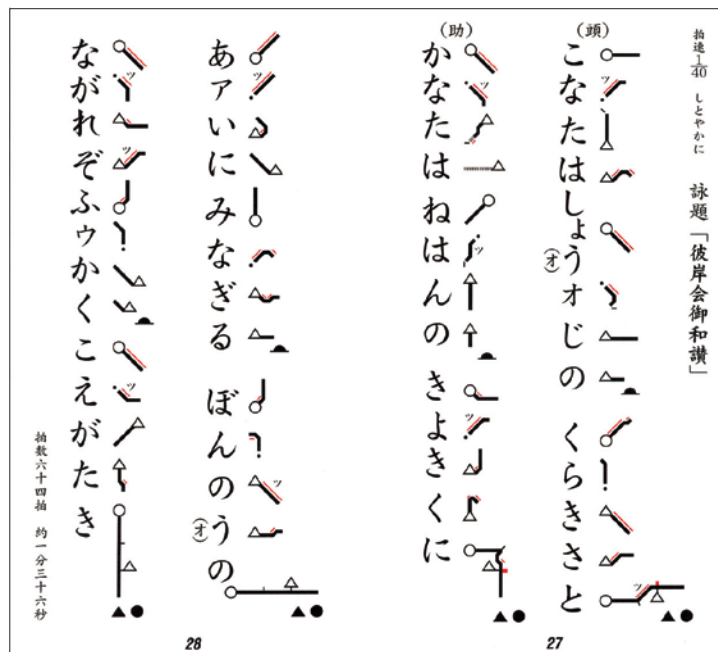 拍速1/40 しとやかに 詠題「彼岸会御和讃」
(頭)
こなたはしょうォじの くらきさと
(オ)
(助)
かなたはねはんの きよきくに
27
あァいにみなぎる ぼんのうの
(オ)
ながれぞふゥかく こえがたき
拍数六十四拍 約一分三十六秒
28
ツ
ツ
ツ
ツ
ツ
ツ
ツ
ツ
ツ
ツ